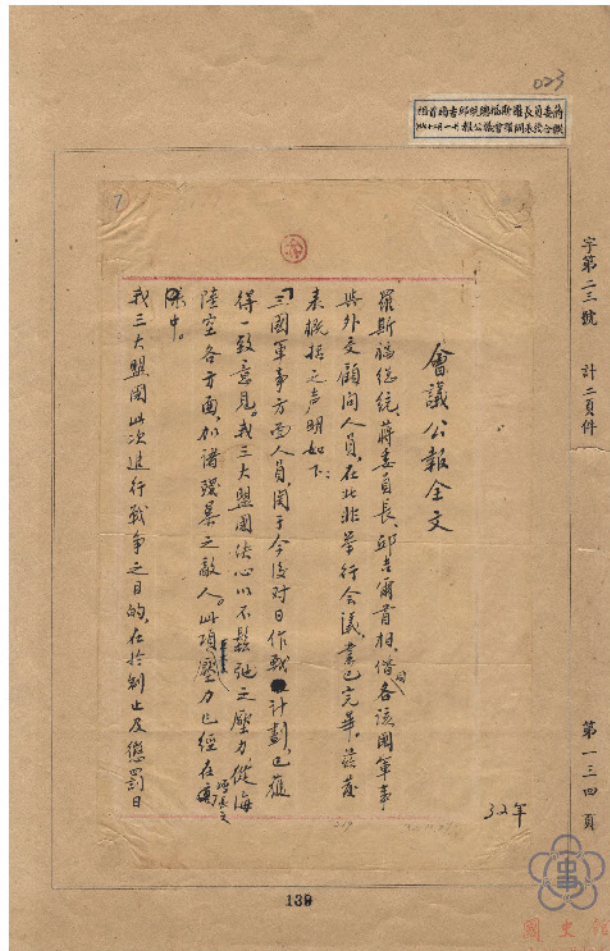 023
蔣委員長羅斯福總統邱吉爾首相
聯合發表開羅會議公報
字第二三號 計二頁件
第一三四頁
7
會議公報全文
羅斯福總統、蔣委員長、邱吉爾首相、偕同各該國軍事
與外交顧問人員、在北非舉行会議、業已完畢、茲發
表概括之声明如下：
三國軍事方面人員、関于今後对日作戰計劃、已獲
得一致意見。我三大盟國决心以不鬆弛之壓力、從海
陸空各方面、加諸殘暴之敵人。此項壓力已經在增長之
中。
我三大盟國此次進行戰争之目的、在於制止及懲罰日
32年
139
國史館